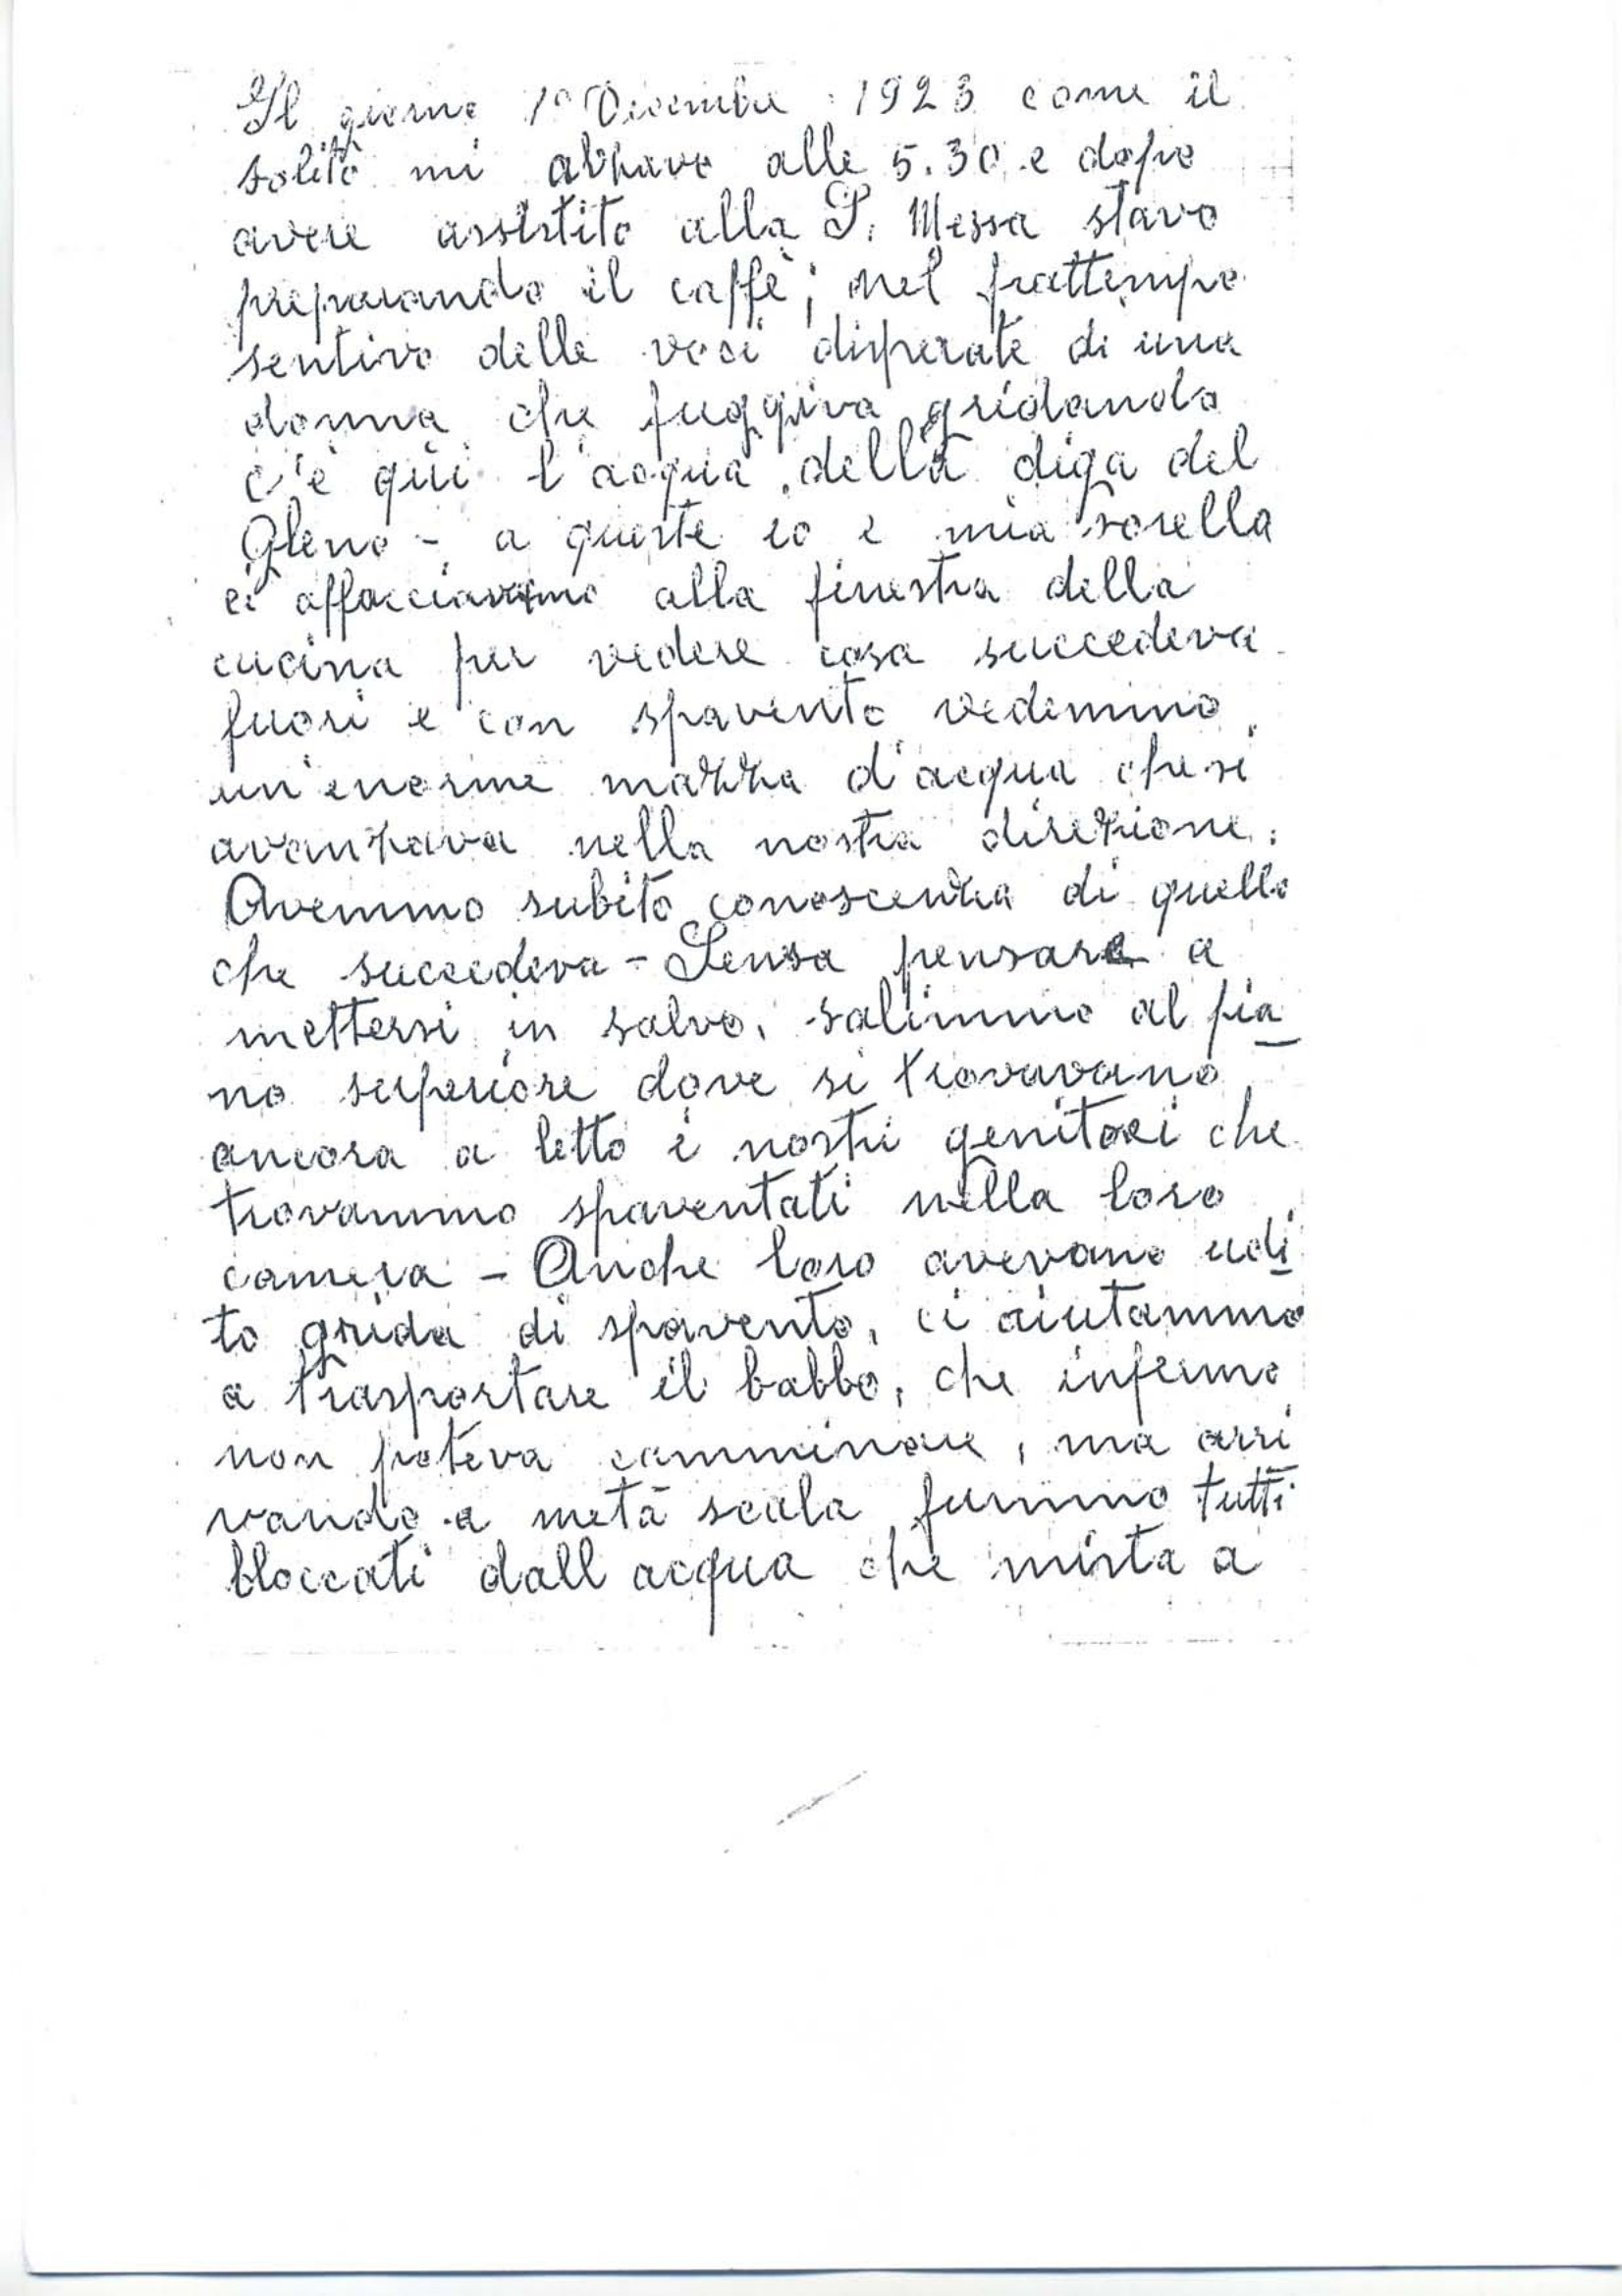 Il giorno 1° Dicembre 1923 come il
solito mi alzavo alle 5.30 e dopo
avere assistito alla S. Messa stavo
preparando il caffè; nel frattempo
sentivo delle voci disperate di una
donna che fuggiva gridando
c'è qui l'acqua della diga del
Gleno - a queste io e mia sorella
ci affacciavamo alla finestra della
cucina per vedere cosa succedeva
fuori e con spavento vedemmo
un'enorme mazza d'acqua che si
avanzava nella nostra direzione.
Avemmo subito conoscenza di quello
che succedeva - Senza pensare a
mettersi in salvo, salimmo al pia
no superiore dove si trovavano
ancora a letto i nostri genitori che
trovammo spaventati nella loro
camera - Anche loro avevano udi
to grida di spavento, ci aiutammo
a trasportare il babbo, che infermo
non poteva camminare, ma arri
vando a metà scala fummo tutti
bloccati dall acqua che mista a